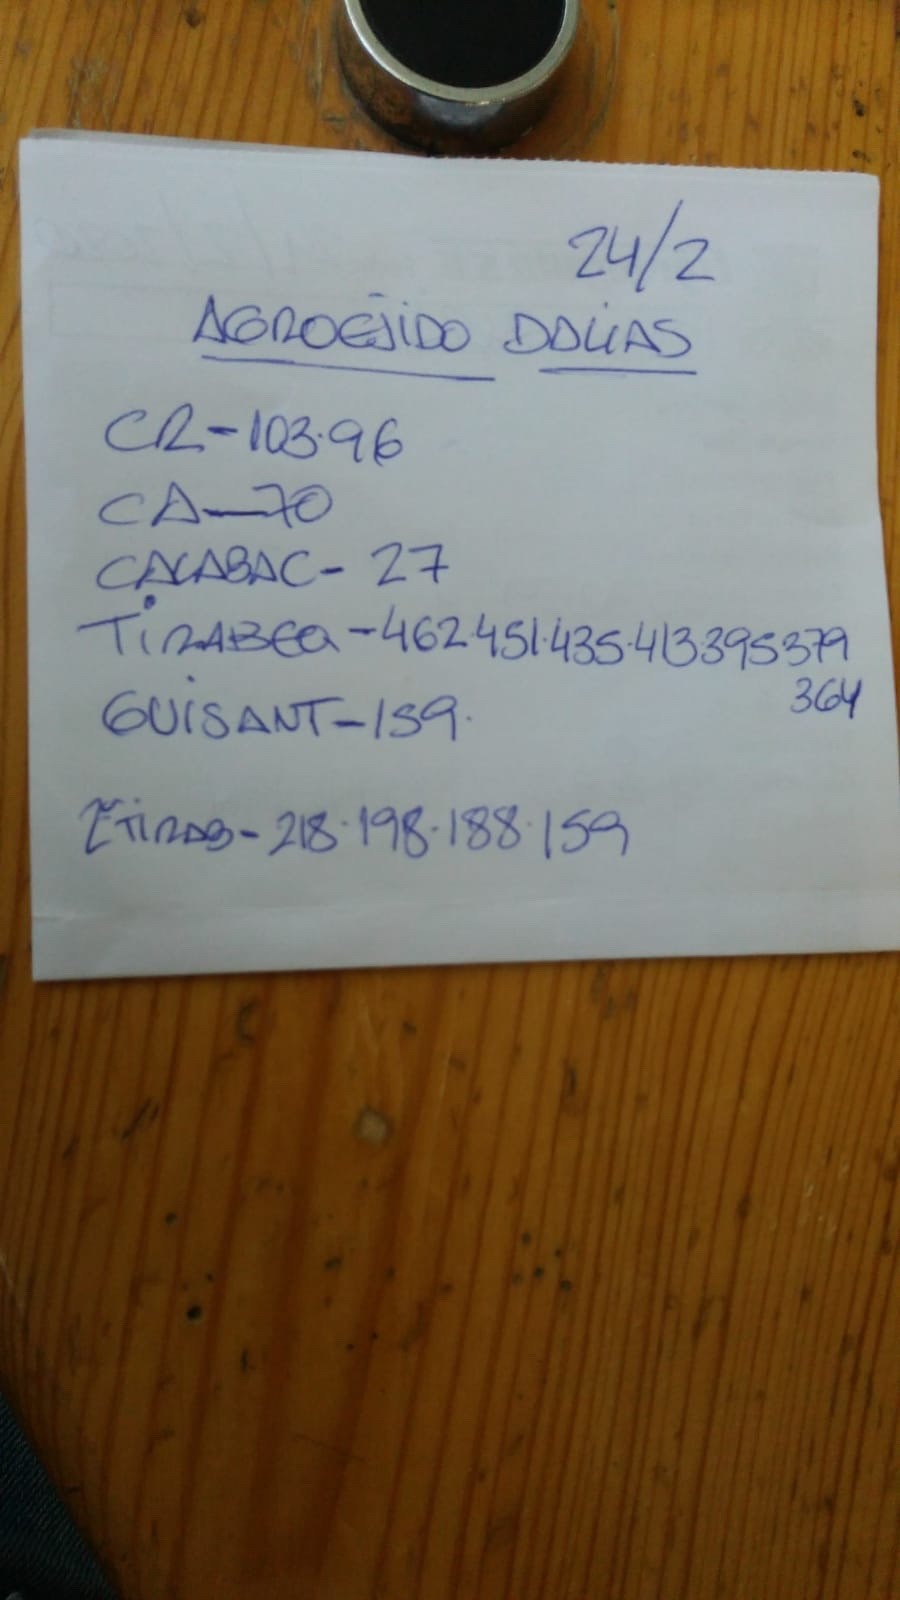 24/2
AGROEJIDO DALIAS
CR-103.96
CA-70
CALABAC-27
TIRABEQ-462.451.435.413.395 379
364
GUISANT-159.
2ªTIRAB-218.198.188.159